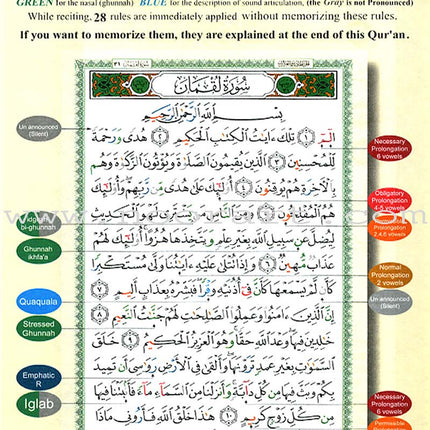 GREEN for the nasal (ghunnah) BLUE for the description of sound articulation, (the Gray is not Pronounced)
While reciting, 28 rules are immediately applied without memorizing these rules.
If you want to memorize them, they are explained at the end of this Qur'an.
سُورَةُ لُقْمَان
بِسْمِ اللَّهِ الرَّحْمَٰنِ الرَّحِيمِ
الٓمٓ ١ تِلْكَ ءَايَٰتُ الْكِتَٰبِ الْحَكِيمِ ٢ هُدًى وَرَحْمَةً
لِّلْمُحْسِنِينَ ٣ الَّذِينَ يُقِيمُونَ الصَّلَوٰةَ وَيُؤْتُونَ الزَّكَوٰةَ وَهُم
بِالْءَاخِرَةِ هُمْ يُوقِنُونَ ٤ أُو۟لَٰٓئِكَ عَلَىٰ هُدًى مِّن رَّبِّهِمْ وَأُو۟لَٰٓئِكَ
هُمُ الْمُفْلِحُونَ ٥ وَمِنَ النَّاسِ مَن يَشْتَرِى لَهْوَ الْحَدِيثِ
لِيُضِلَّ عَن سَبِيلِ اللَّهِ بِغَيْرِ عِلْمٍ وَيَتَّخِذَهَا هُزُوًا أُو۟لَٰٓئِكَ لَهُمْ
عَذَابٌ مُّهِينٌ ٦ وَإِذَا تُتْلَىٰ عَلَيْهِ ءَايَٰتُنَا وَلَّىٰ مُسْتَكْبِرًا
كَأَن لَّمْ يَسْمَعْهَا كَأَنَّ فِىٓ أُذُنَيْهِ وَقْرًا فَبَشِّرْهُ بِعَذَابٍ أَلِيمٍ ٧
إِنَّ الَّذِينَ ءَامَنُوا۟ وَعَمِلُوا۟ الصَّٰلِحَٰتِ لَهُمْ جَنَّٰتُ النَّعِيمِ ٨
خَٰلِدِينَ فِيهَا وَعْدَ اللَّهِ حَقًّا وَهُوَ الْعَزِيزُ الْحَكِيمُ ٩ خَلَقَ
السَّمَٰوَٰتِ بِغَيْرِ عَمَدٍ تَرَوْنَهَا وَأَلْقَىٰ فِى الْأَرْضِ رَوَٰسِىَ أَن تَمِيدَ
بِكُمْ وَبَثَّ فِيهَا مِن كُلِّ دَآبَّةٍ وَأَنزَلْنَا مِنَ السَّمَآءِ مَآءً فَأَنۢبَتْنَا فِيهَا
مِن كُلِّ زَوْجٍ كَرِيمٍ ١٠ هَٰذَا خَلْقُ اللَّهِ فَأَرُونِى مَاذَا
Un announced
(Silent)
bi-ghunnah
Ghunnah
ikhfa'a
Quaquala
Stressed
Ghunnah
Emphatic
R
Iglab
Necessary
Prolongation
6 vowels
Obligatory
Prolongation
4-5 vowels
Prolongation
2,4,6 vowels
Normal
Prolongation
2 vowels
Un announced
(Silent)
Necessary
Prolongation
6 vowels
Permissible